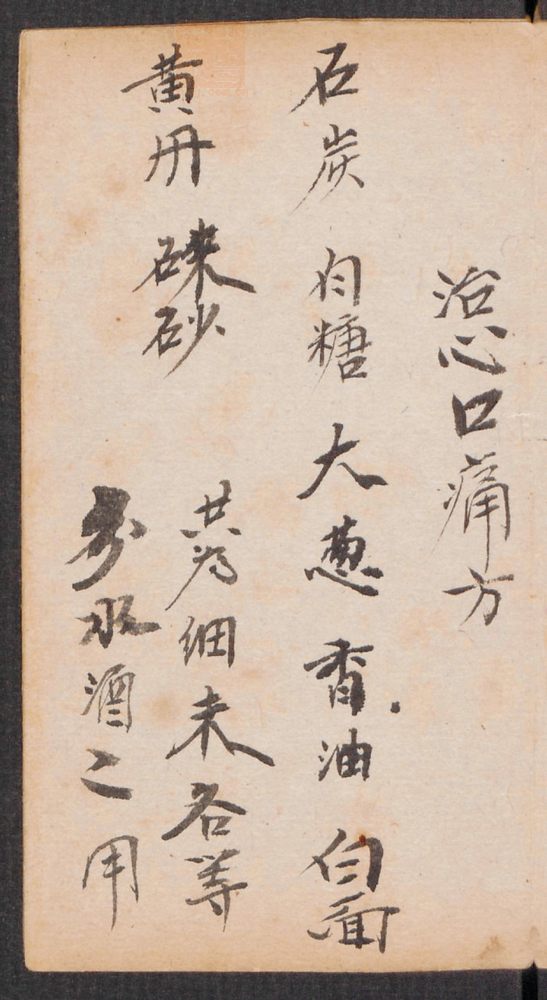 治心口痛方
石炭 白糖 大葱 香油 白面
黄丹 硃砂 共为细末各等
分水酒之用